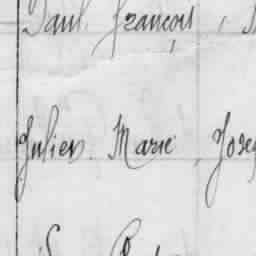 Paul François,
Julien Marie, Jose